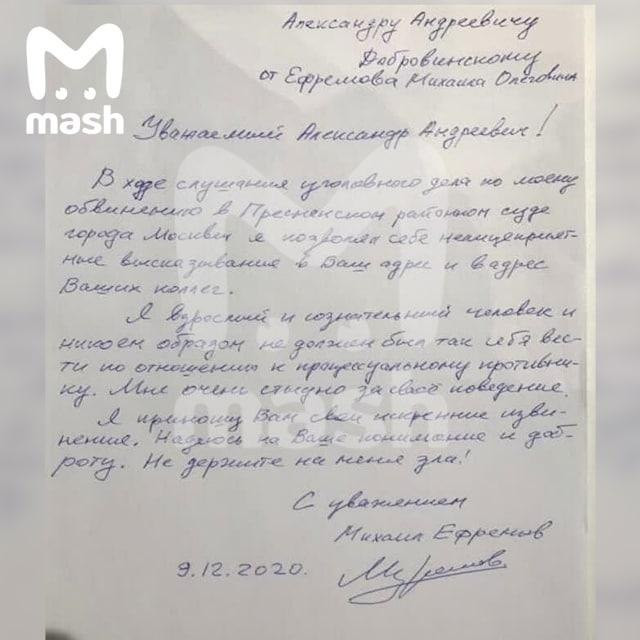 mash
Александру Андреевичу
Добровинскому
от Ефремова Михаила Олеговича
Уважаемый Александр Андреевич!
В ходе слушания уголовного дела по моему
обвинению в Пресненском районном суде
города Москвы я позволял себе нелицеприят-
ные высказывание в Ваш адрес и в адрес
Ваших коллег.
Я взрослый и сознательный человек и
никоем образом не должен был так себя вес-
ти по отношению к процессуальному противни-
ку. Мне очень стыдно за своё поведение.
Я приношу Вам свои искренние изви-
нение. Надеюсь на Ваше понимание и доб-
роту. Не держите на меня зла!
С уважением
Михаил Ефремов
9.12.2020.
mash